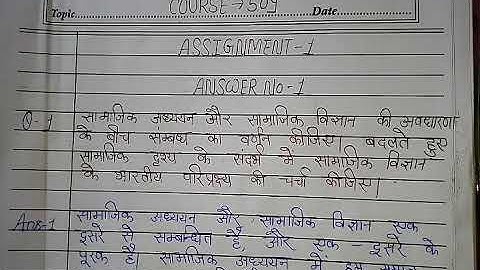 Topic........ COURSE → 509 Date........
ASSIGNMENT-1
ANSWER No-1
Q-1 सामाजिक अध्ययन और सामाजिक विज्ञान की अवधारणा
के बीच संम्बध का वर्णन कीजिए। बदलते हुए
सामाजिक दृश्य के संदर्भ में सामाजिक विज्ञान
के भारतीय परिप्रेक्ष्य की चर्चा कीजिए।
Ans-1 सामाजिक अध्ययन और सामाजिक विज्ञान एक
दूसरे से सम्बन्धित है, और एक-दूसरे के
पूरक है। सामाजिक अध्ययन में